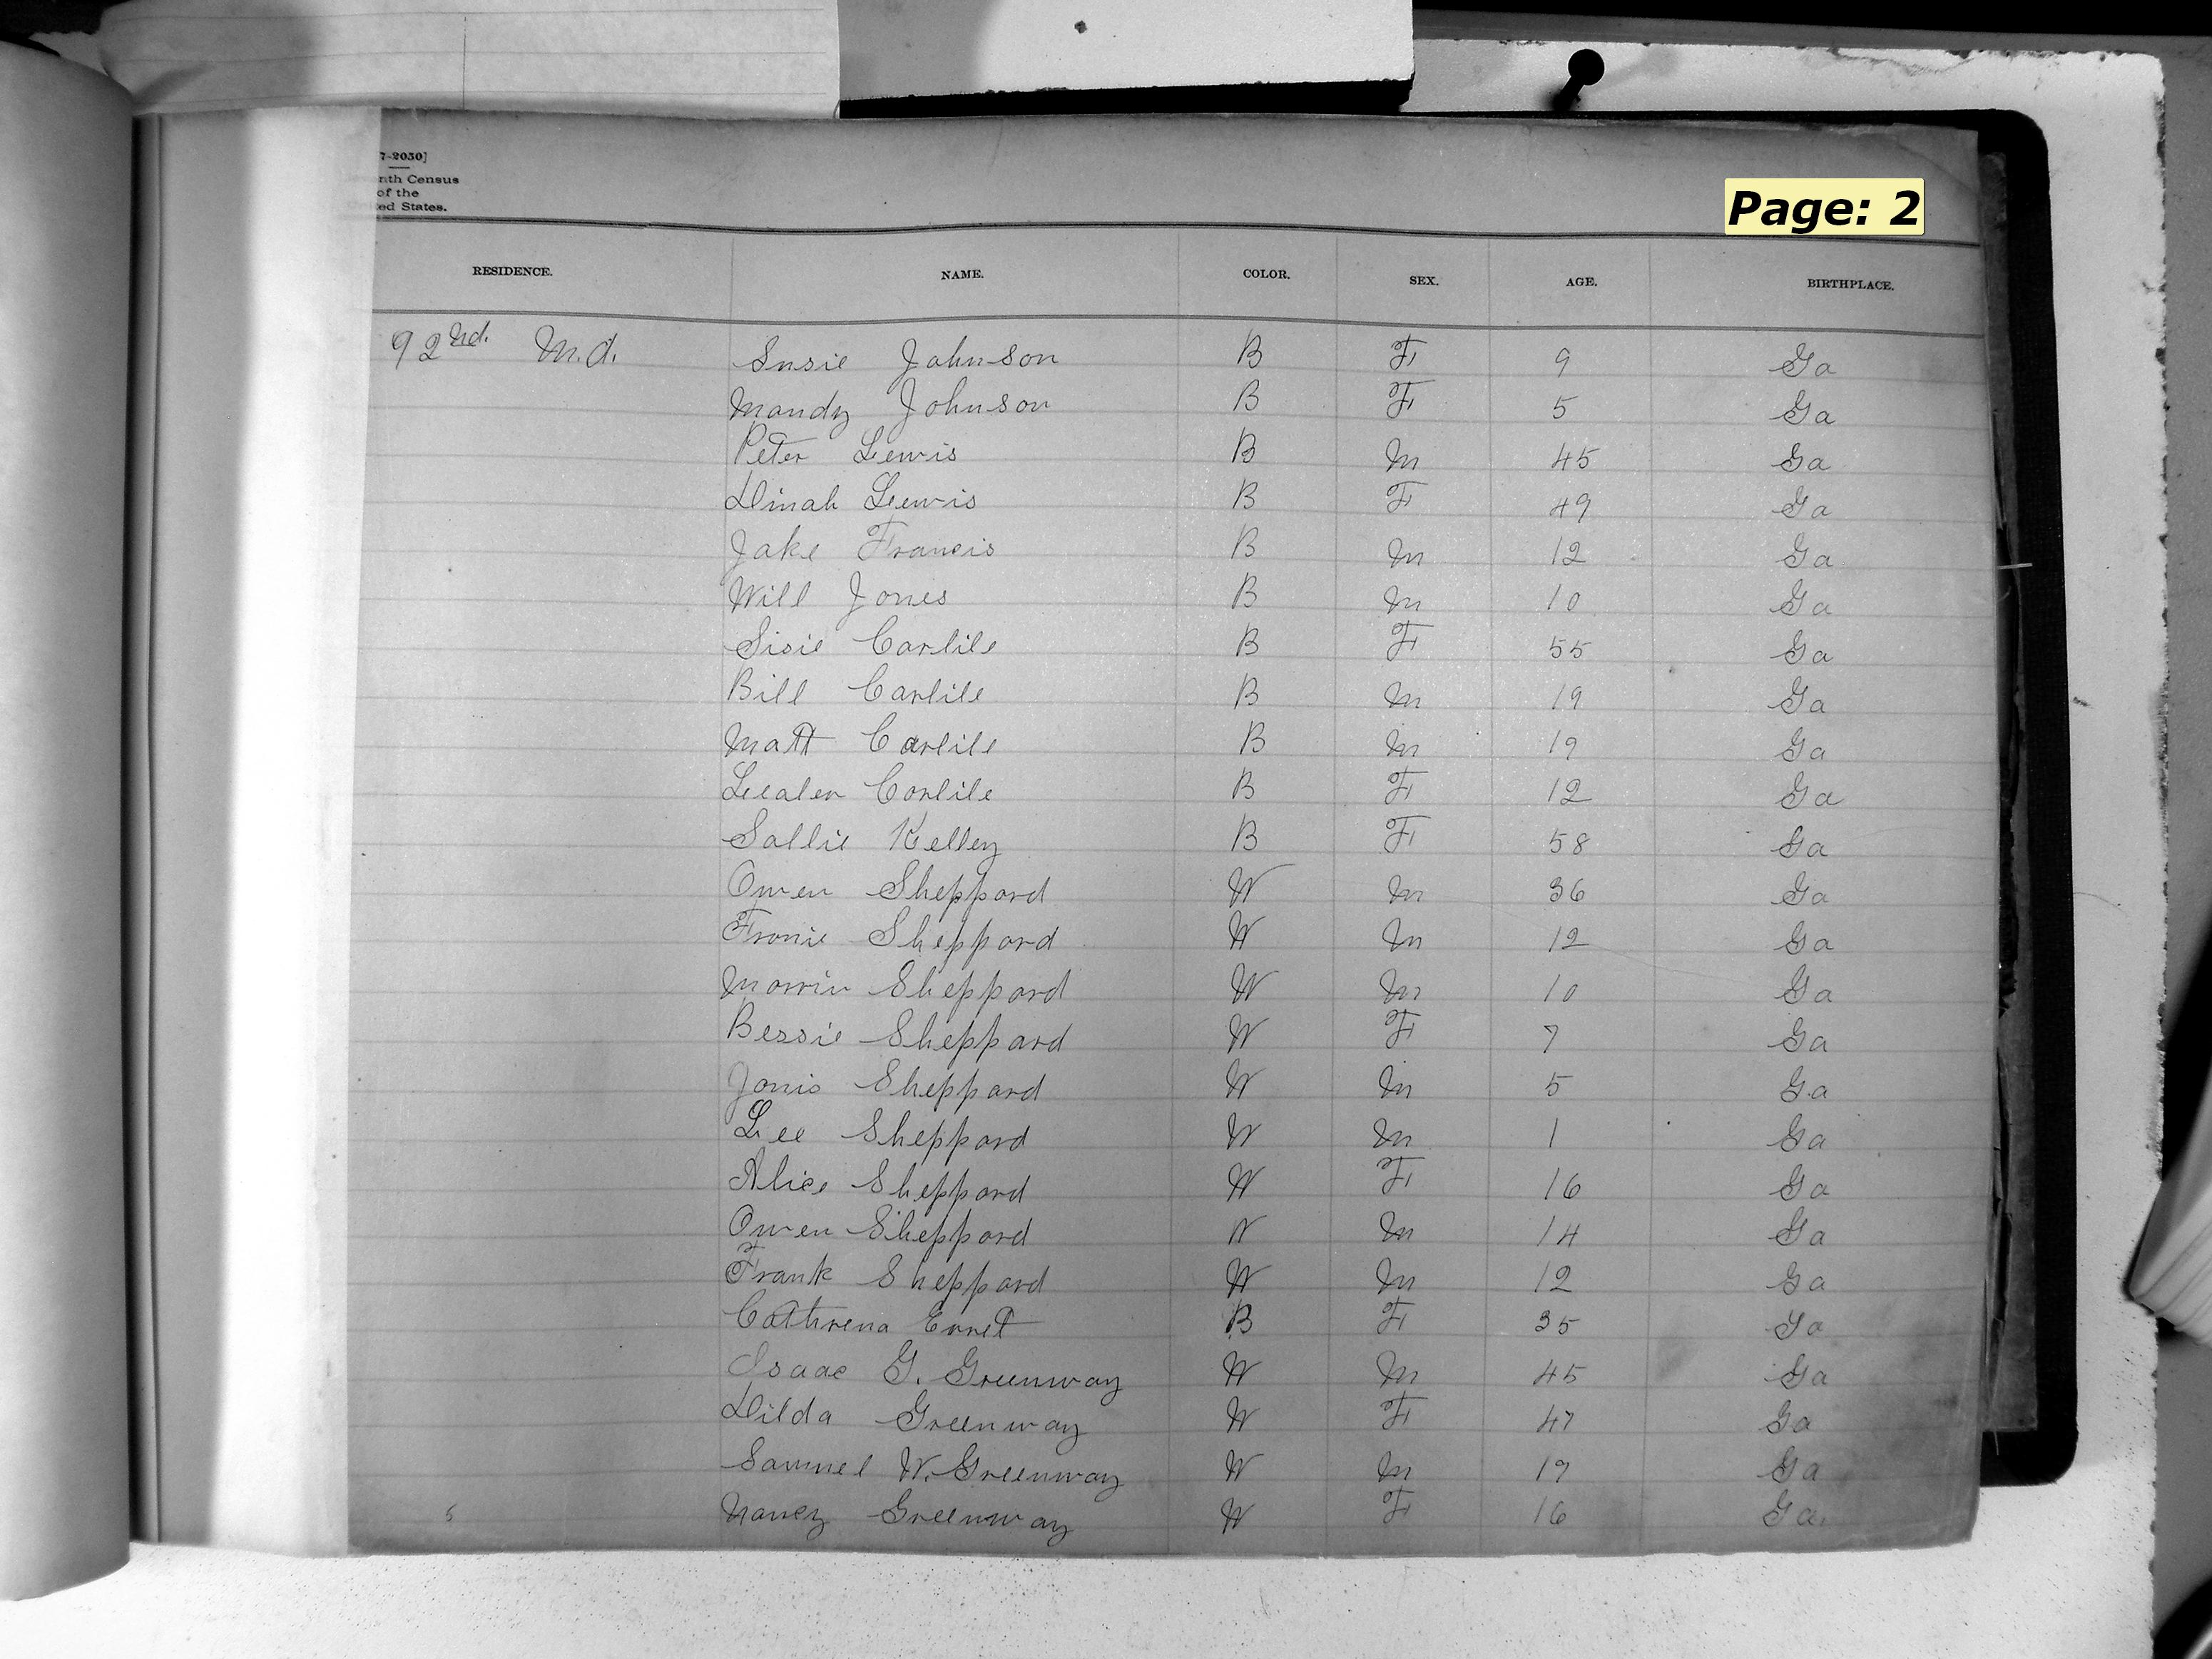 7-2050]
nth Census
of the
ed States.
Page: 2
RESIDENCE. NAME. COLOR. SEX. AGE. BIRTHPLACE.
92nd. M.d. Susie Johnson B F 9 Ga
Mandy Johnson B F 5 Ga
Peter Lewis B M 45 Ga
Dinah Lewis B F 49 Ga
Jake Francis B M 12 Ga
Will Jones B M 10 Ga
Sisie Carlile B F 55 Ga
Bill Carlile B M 19 Ga
Matt Carlile B M 19 Ga
Leealer Carlile B F 12 Ga
Sallie Kelley B F 58 Ga
Owen Sheppard W M 36 Ga
Fronie Sheppard W M 12 Ga
Morrin Sheppard W M 10 Ga
Bessie Sheppard W F 7 Ga
Sheppard W M 5 Ga
Lee Sheppard W M 1 Ga
Alice Sheppard W F 16 Ga
Owen Sheppard W M 14 Ga
Frank Sheppard W M 12 Ga
Cathrena B F 35 Ga
Isaac G. Greenway W M 45 Ga
Dilda Greenway W F 47 Ga
Samuel W. Greenway W M Ga
Nancy Greenway W F 16 Ga.